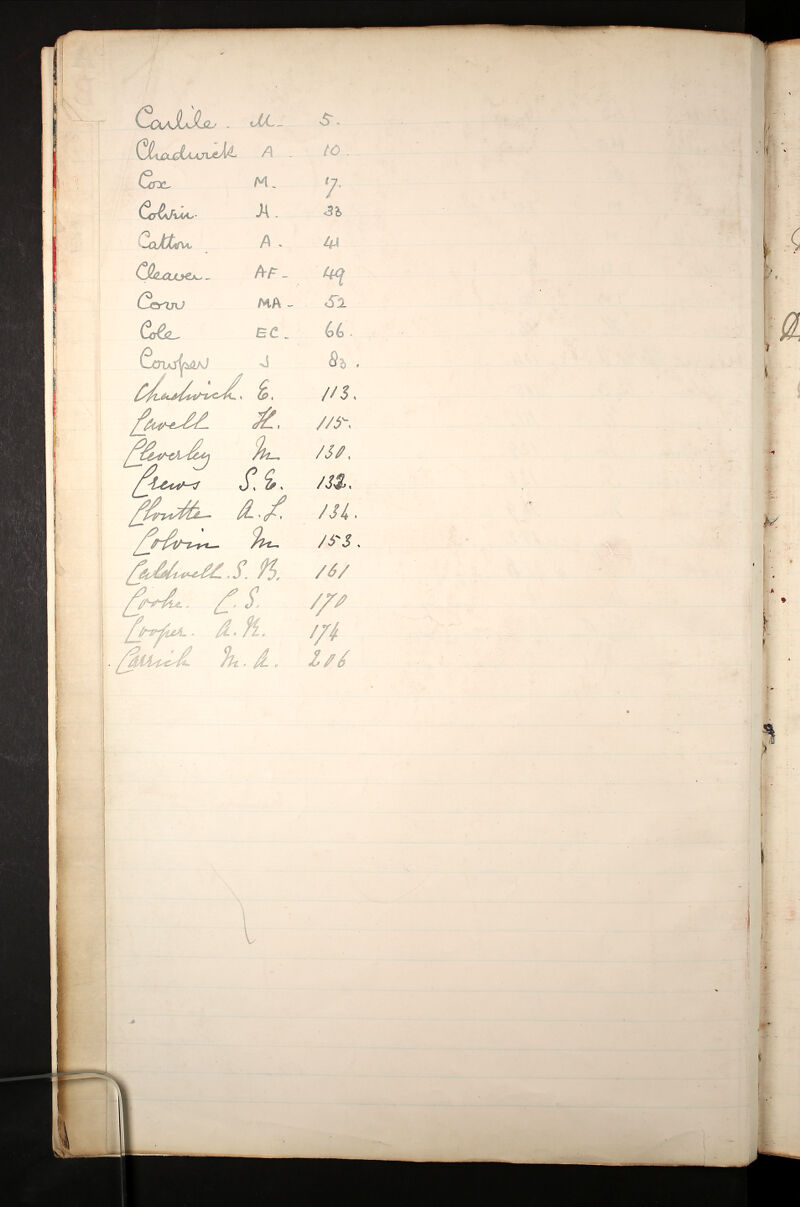 Carlile. M- 5.
Chadwick A. 10.
Cox M. 17.
Colvin. H. 33
Catton. A. 41
Cleaver- AF- 49
Corr MA- 52
Cole EC. 66.
Cowper J 83.
Chadwick. E. 113.
Cavell H. 115.
Cleverley M 130.
Crews S.E. 132.
Cloutte A.L. 134.
Colvin M 153.
Caldwell. S.B. 161
Cooke. C.S. 170
Cooper. A.R. 174
Carrick M.A. 206